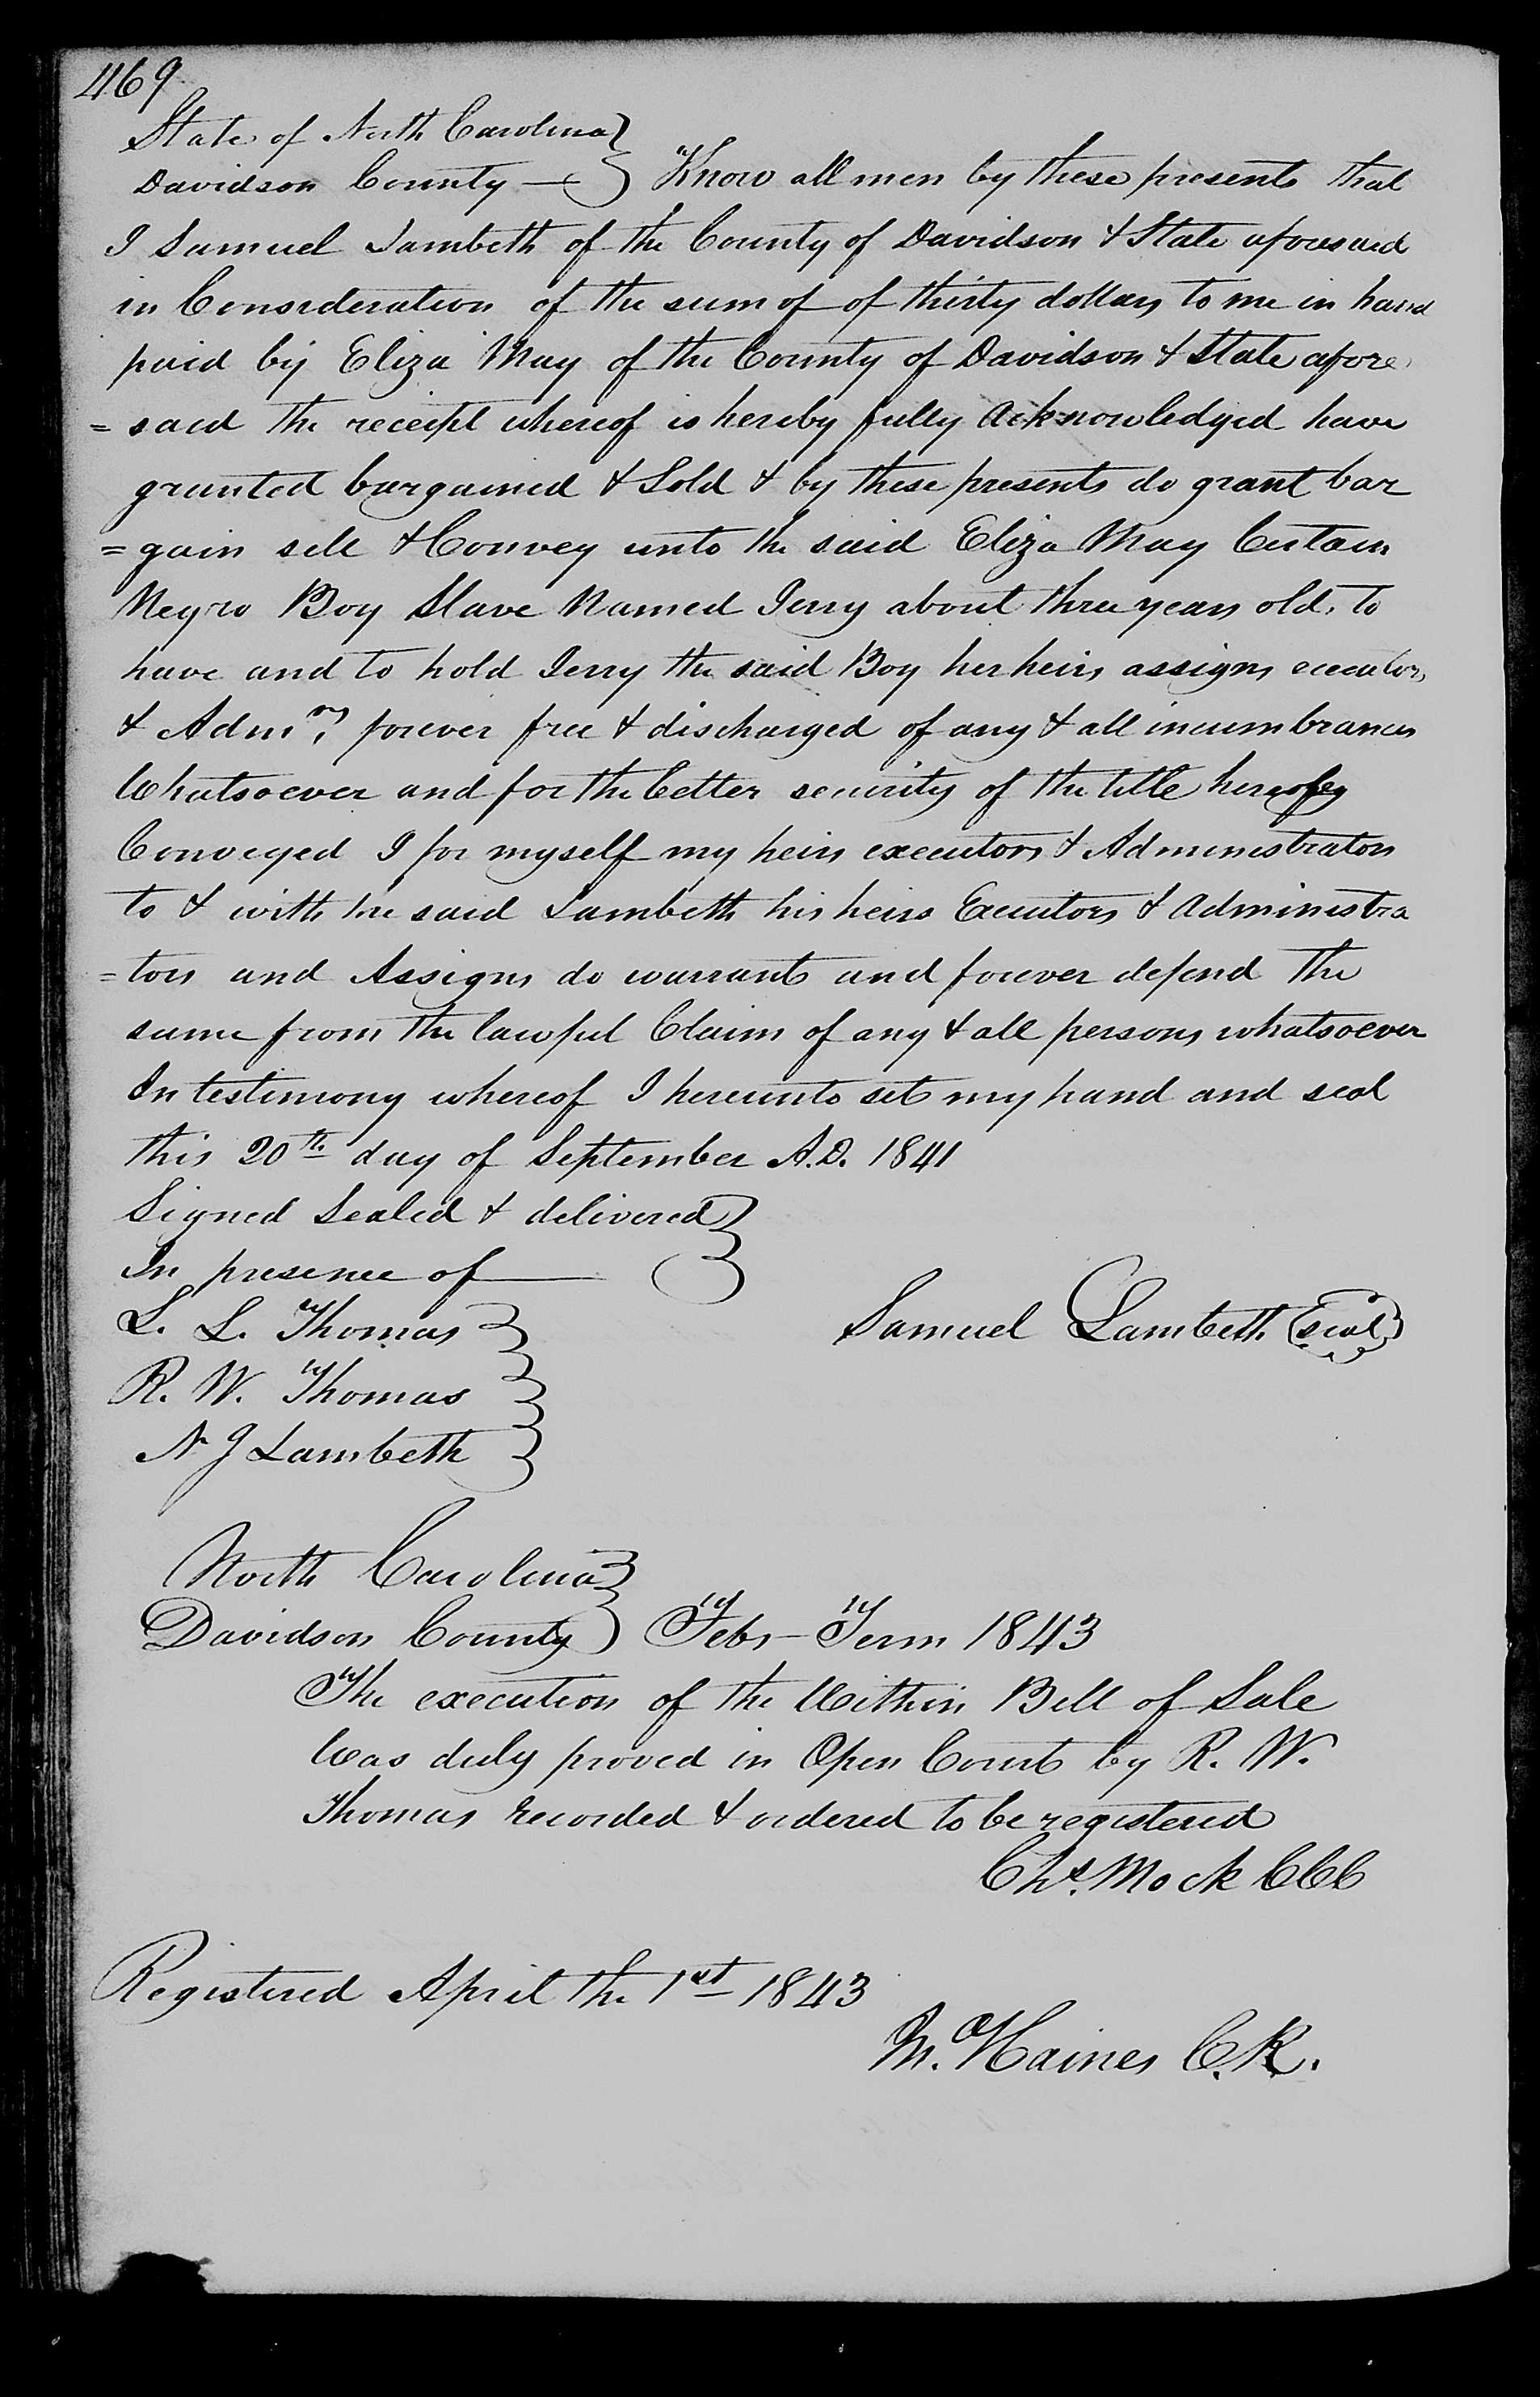 469
State of North Carolina }
Davidson County — } Know all men by these presents that
I Samuel Lambeth of the County of Davidson & State aforesaid
in Consideration of the sum of of thirty dollars to me in hand
paid by Eliza May of the County of Davidson & State afore
= said the receipt whereof is hereby fully acknowledged have
granted bargained & Sold & by these presents do grant bar
= gain sell & Convey unto the said Eliza May Certain
Negro Boy Slave Named Jerry about three years old, to
have and to hold Jerry the said Boy her heirs assigns executors
& Admrs, forever free & discharged of any & all incumbrances
Whatsoever and for the better security of the title
Conveyed I for myself my heirs executors & Administrators
to & with the said Lambeth his heirs Executors & administra
= tors and Assigns do warrant and forever defend the
same from the lawful Claim of any & all persons whatsoever
In testimony whereof I hereunto set my hand and seal
this 20th day of September A.D. 1841
Signed Sealed & delivered }
In presence of —
L. L. Thomas }
Samuel Lambeth (seal)
R. W. Thomas
N J Lambeth
North Carolina }
Davidson County } Feb - Term 1843
The execution of the Within Bill of Sale
Was duly proved in Open Court by R. W.
Thomas recorded & ordered to be registered
Chs. Mock CCC
Registered April the 1st 1843
M. Haines C.R.